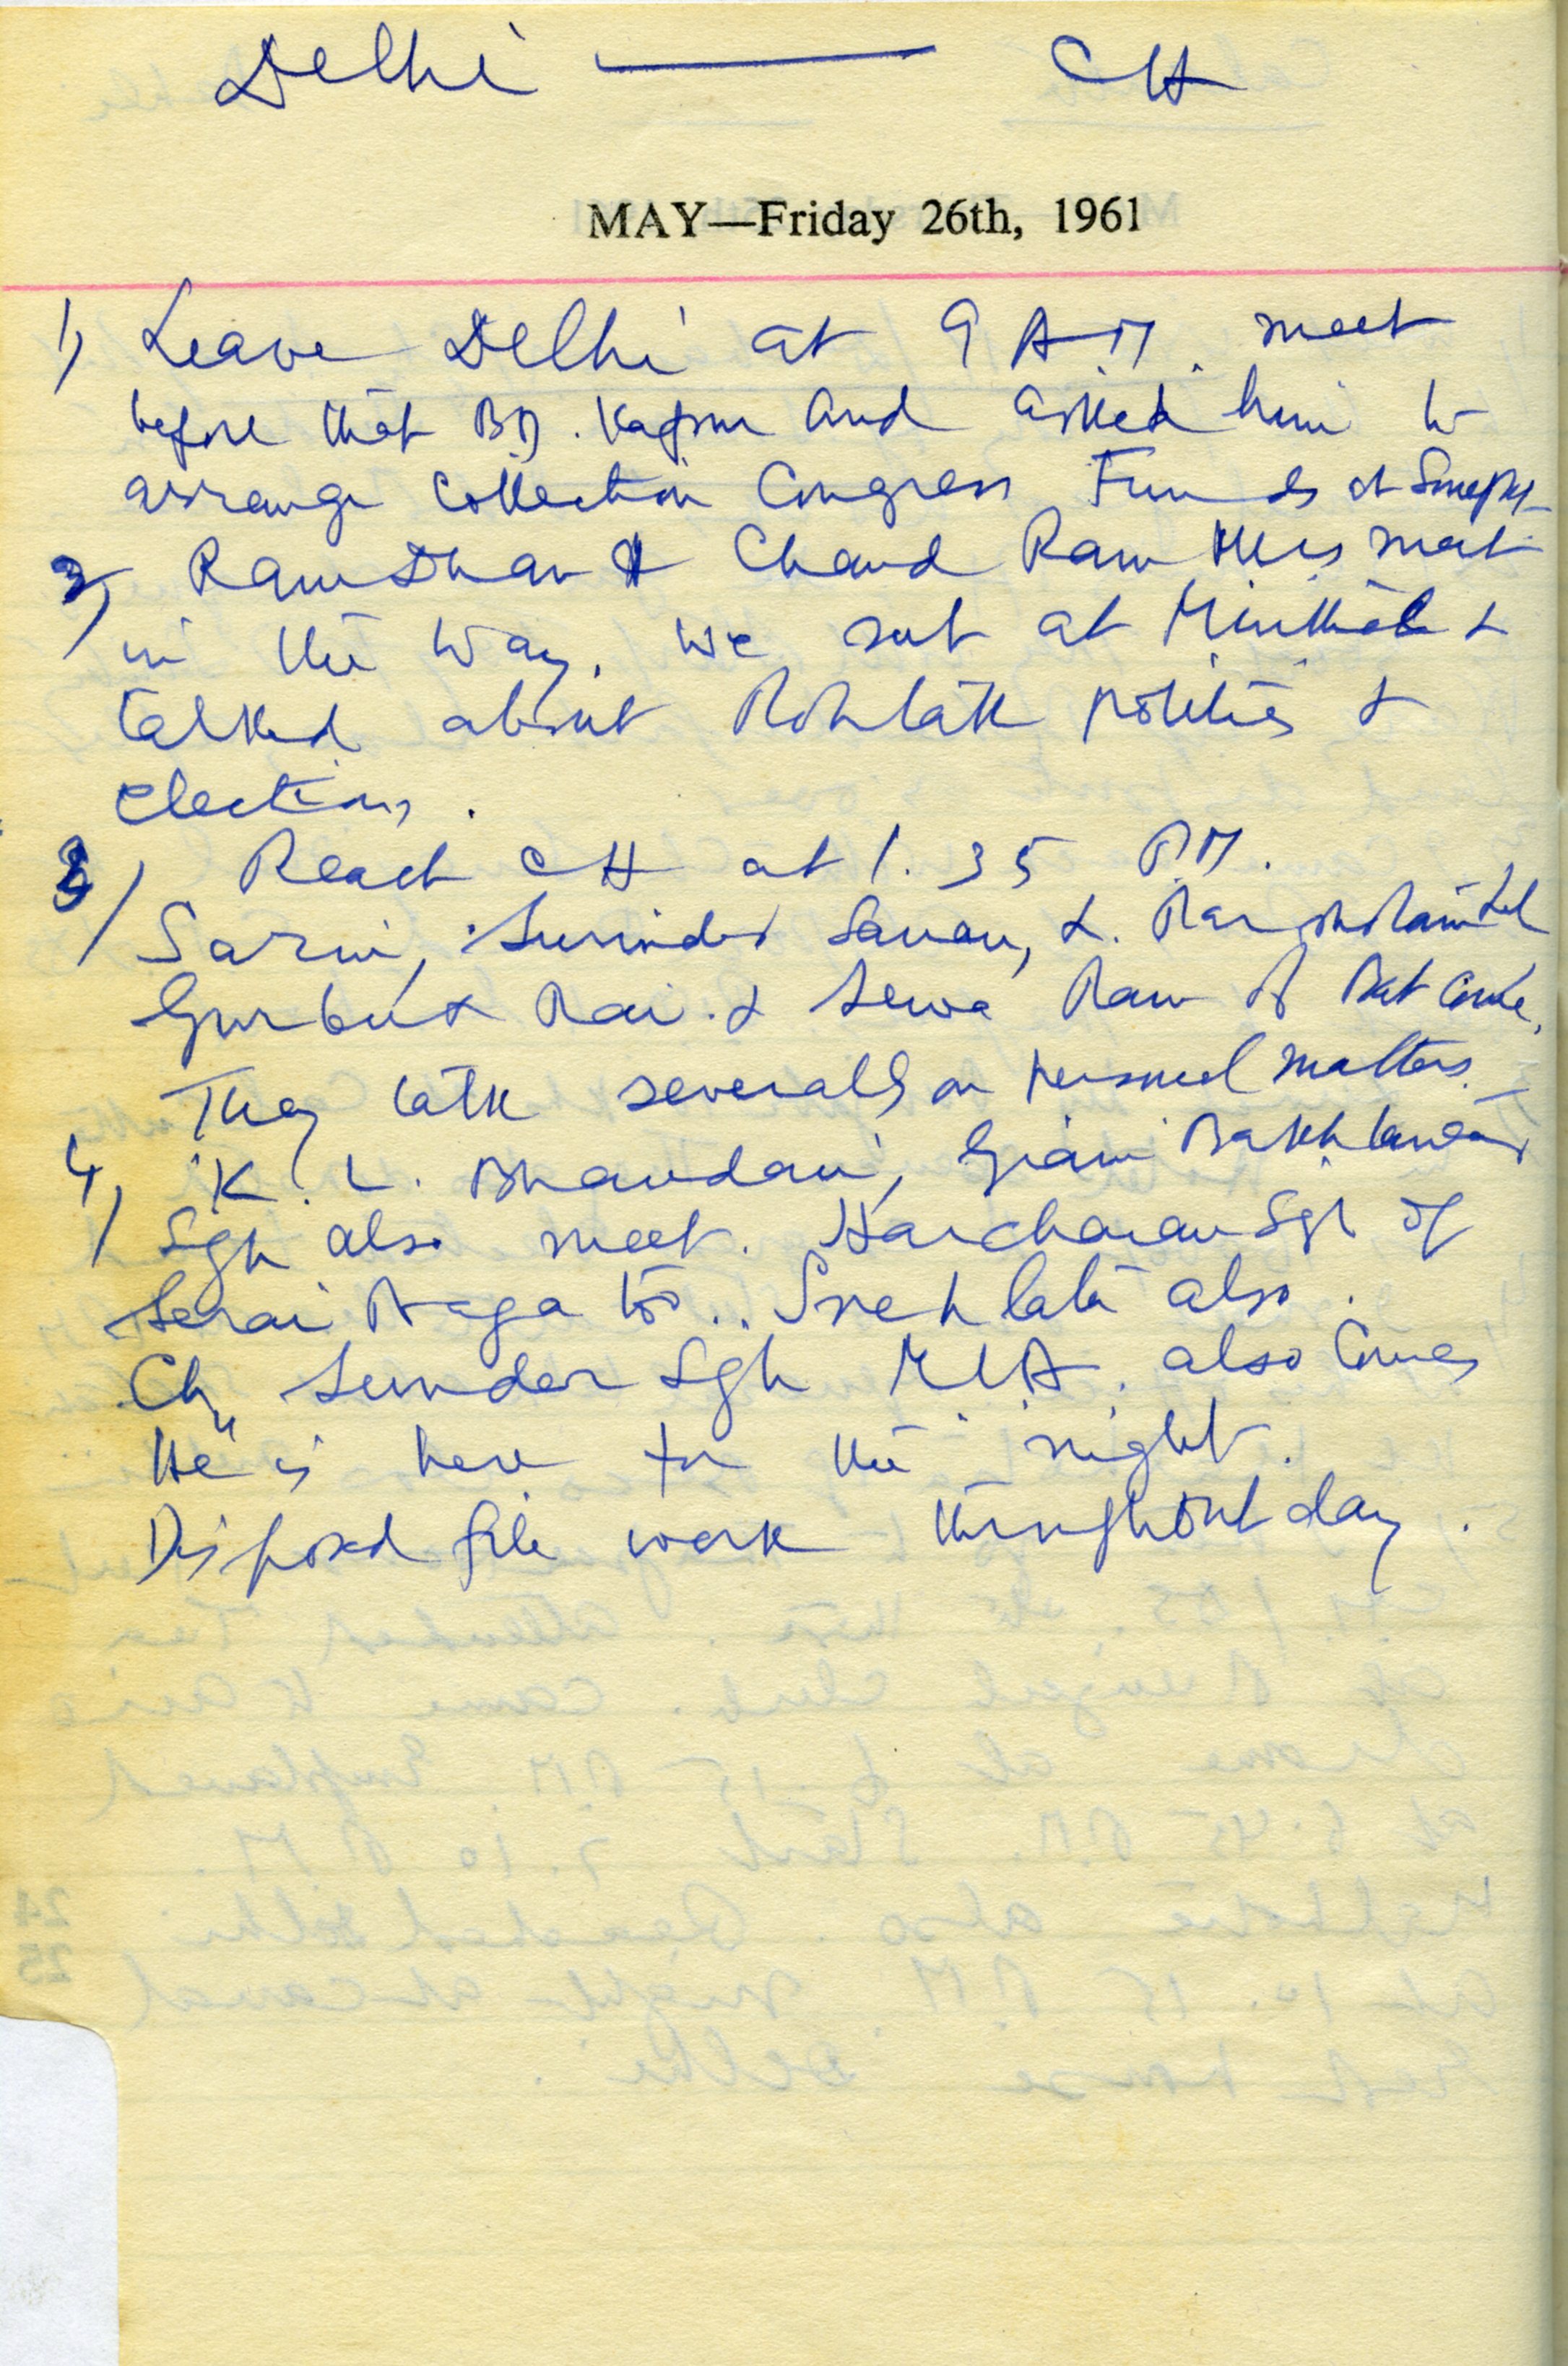 Delhi — CH
MAY—Friday 26th, 1961
1) Leave Delhi at 9 A.M. meet
before that BD. Kapur and asked him to
arrange collection Congress Funds at
2) Ram Dhan & Chand Ram MLAs meet
in the way. We sat at &
talked about Rohtak politics &
elections.
3) Reach CH at 1.35 P.M.
Sarin, Surinder & Ram Lal
Gurbux Rai & Sewa Ram of come.
They talk severally on personal matters.
4) K. L. Bhandari, Giani Bakhtawar
Sgh also meet. Harcharan Sgh of
Serai Naga too. Sneh lata also.
Ch. Sunder Sgh M.L.A. also comes
He is here for the night.
Disposed file work throughout day.